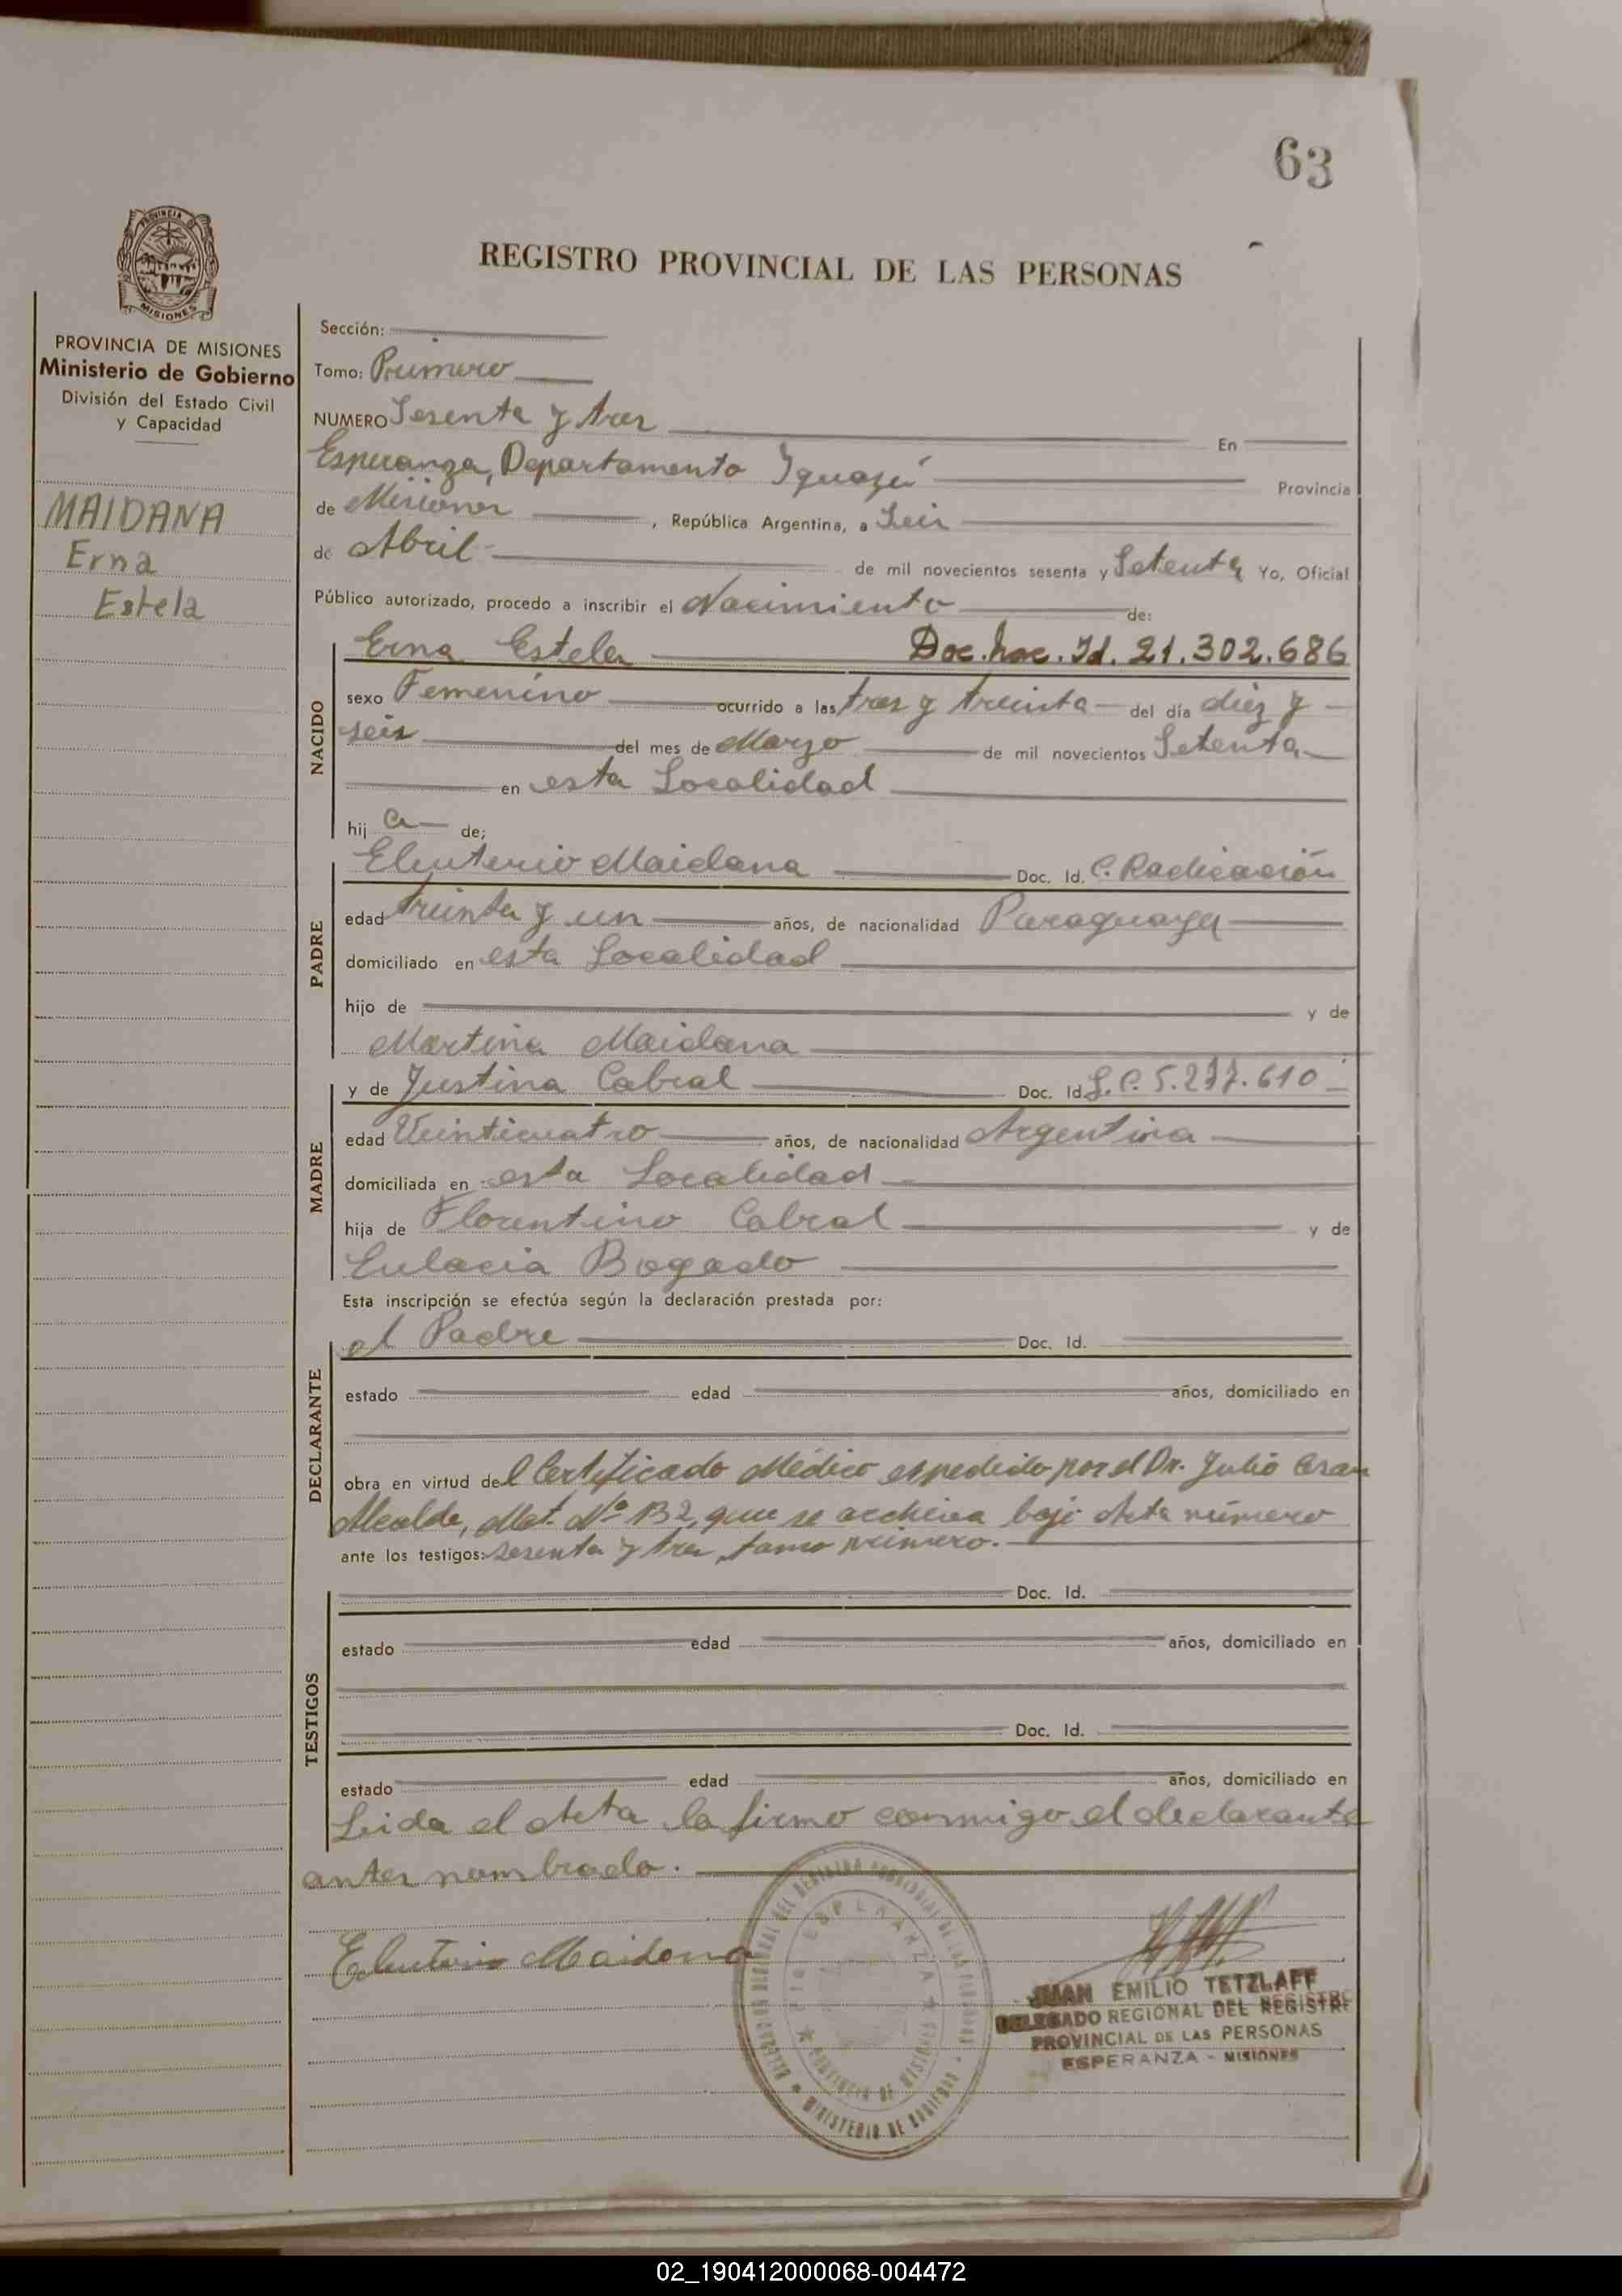 63
PROVINCIA DE
MISIONES
REGISTRO PROVINCIAL DE LAS PERSONAS
PROVINCIA DE MISIONES
Ministerio de Gobierno
División del Estado Civil
y Capacidad
MAIDANA
Erna
Estela
Sección:
Tomo: Primero
NUMERO Sesenta y tres En
Esperanza, Departamento Iguazú Provincia
de Misiones, República Argentina, a Seis
de Abril de mil novecientos sesenta y Setenta Yo, Oficial
Público autorizado, procedo a inscribir el Nacimiento de:
NACIDO
Erna Estela Doc. Nac. Id. 21.302.686
sexo Femenino ocurrido a las tres y treinta del día diez y
seis del mes de Marzo de mil novecientos Setenta
en esta Localidad
hij a de;
PADRE
Eleuterio Maidana Doc. Id. C. Radicación
edad treinta y un años, de nacionalidad Paraguaya
domiciliado en esta Localidad
hijo de y de
Martina Maidana
MADRE
y de Justina Cabral Doc. Id L.C. 5.277.610
edad Veinticuatro años, de nacionalidad Argentina
domiciliada en esta Localidad
hija de Florentino Cabral y de
Eulacia Bogado
Esta inscripción se efectúa según la declaración prestada por:
DECLARANTE
el Padre Doc. Id.
estado edad años, domiciliado en
obra en virtud del Certificado Médico expedido por el Dr. Julio Cesar
Alcalde, Mat. Nº 132, que se archiva bajo Acta número
ante los testigos: sesenta y tres, tomo primero.
TESTIGOS
Doc. Id.
estado edad años, domiciliado en
Doc. Id.
estado edad años, domiciliado en
Leida el Acta la firmo conmigo el declarante
antes nombrado.
Eleuterio Maidana
ESPERANZA
PROVINCIA DE MISIONES
MINISTERIO DE GOBIERNO
JUAN EMILIO TETZLAFF
DELEGADO REGIONAL DEL REGISTRO
PROVINCIAL DE LAS PERSONAS
ESPERANZA - MISIONES
02_190412000068-004472